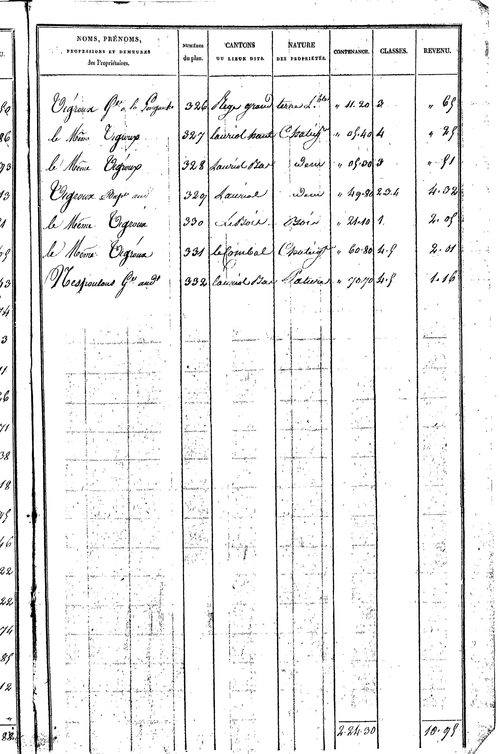 NOMS, PRÉNOMS, PROFESSIONS ET DEMEURES des Propriétaires. NUMÉROS du plan. CANTONS OU LIEUX DITS. NATURE DES PROPRIÉTÉS. CONTENANCE. CLASSES. REVENU.
Vigroux 326 Piege grand terre Lble " 11.20 3 " 65
le Même Vigroux 327 Lauriol haut Chataigr " 05.40 4 " 25
le Même Vigroux 328 Lauriol Bas Dem " 05.00 3 " 51
Vigroux 329 Lauriol Dem " 49.80 2.3.4 4.32
le Même Vigroux 330 Le Bois Bois " 21.10 1 2.05
le Même Vigroux 331 le Combal Chataigr " 60.80 4.5 2.01
332 Lauriol Bas Pature " 70.70 4.5 1.16
2.24.30 10.95